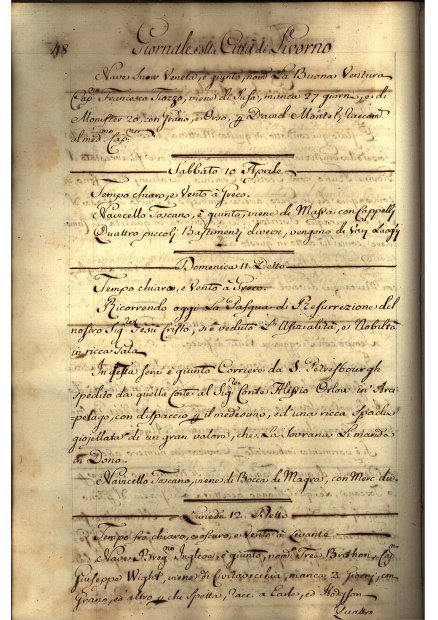 48 Giornale della Città di Livorno
Nave Snow Veneta, è giunto, nom. La Buona Ventura
Cap. Francesco Tiozzo, viene de Susa, manca 27 giorni, e di
Monister 20, con Grano, e Orzo, p David Montel, Racc.
al med.mo Cap.
Sabbato 10 Aprile
Tempo chiaro, e Vento à Greco.
Navicello Toscano, è giunto, viene di Massa con Cappelli
Quattro piccoli Bastimenti diversi, vengono da Varj Luoghi
Domenica 11 Detto
Tempo chiaro, e Vento à Greco.
Ricorrendo oggi La Pasqua di Resurrezione del
nostro Sig.re Jesù Cristo, si è veduto L'Ufizialità, e Nobiltà
in ricca Gala
In questa sera è giunto Corriere da S. Petresbourgh
spedito da quella Corte al Sig.re Conte Alessio Orlow in Arci=
pelago, con dispaccio p il medesimo, ed una ricca Spada
giojellata di un gran valore, che La Sovrana Li manda
in Dono
Navicello Toscano, viene di Bocca di Magra, con Merc. div.
Lunedì 12 Detto
Tempo frà chiaro, e oscuro, e Vento à Levante
Nave Breg.no Inglese, è giunto, nom. Tres Brothon, Cap.
Giuseppe Wight, viene di Civitavecchia, manca 3 Giorni, con
Grano, ed altro p chi Spetta, Racc. a Earle, ed Hodgson
Quattro